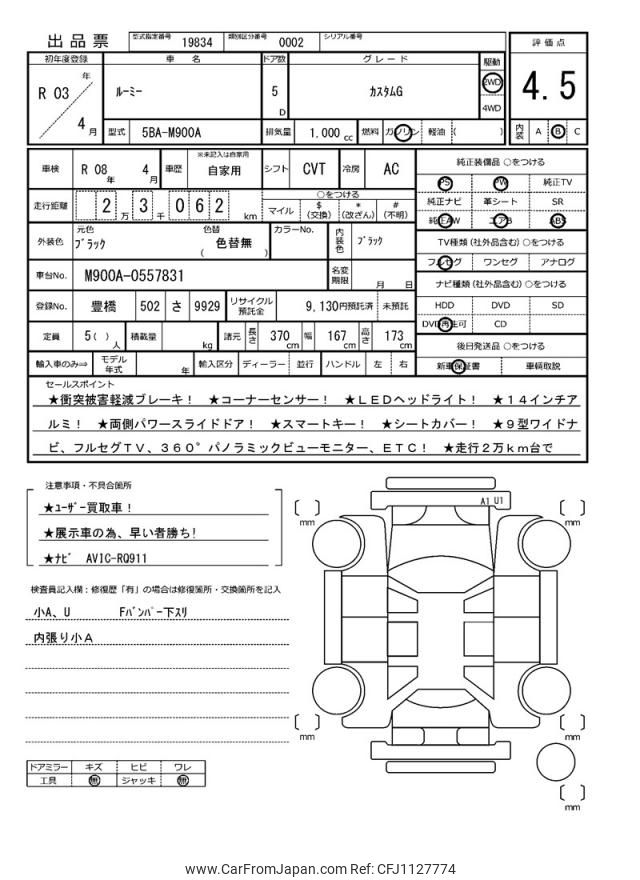 出品票 型式指定番号 19834 類別区分番号 0002 シリアル番号
評価点
4.5
内装 A B C
初年度登録 車名 ドア数 グレード 駆動
R 03 年 4 月 ルーミー 5 D カスタムG 2WD 4WD
型式 5BA-M900A 排気量 1.000 cc 燃料 ガソリン 軽油 ( )
車検 R 08 年 4 月 車歴 ※未記入は自家用 自家用 シフト CVT 冷房 AC
走行距離 2 万 3 千 0 6 2 km ○をつける
マイル $ (交換) * (改ざん) # (不明)
外装色 元色 ブラック 色替 色替無 ( ) カラーNo. 内装色 ブラック
車台No. M900A-0557831 名変期限 月 日
登録No. 豊橋 502 さ 9929 リサイクル預託金 9,130円預託済 未預託
定員 5( ) 人 積載量 kg 諸元 長さ 370 cm 幅 167 cm 高さ 173 cm
輸入車のみ⇒ モデル年式 年 輸入区分 ディーラー 並行 ハンドル 左 右
純正装備品 ○をつける
PS PW 純正TV
純正ナビ 革シート SR
純正AW エアB ABS
TV種類(社外品含む) ○をつける
フルセグ ワンセグ アナログ
ナビ種類(社外品含む) ○をつける
HDD DVD SD
DVD再生可 CD
後日発送品 ○をつける
新車保証書 車輌取説
セールスポイント
★衝突被害軽減ブレーキ！ ★コーナーセンサー！ ★ＬＥＤヘッドライト！ ★１４インチア
ルミ！ ★両側パワースライドドア！ ★スマートキー！ ★シートカバー！ ★９型ワイドナ
ビ、フルセグＴＶ、３６０°パノラミックビューモニター、ＥＴＣ！ ★走行２万ｋｍ台で
注意事項・不具合箇所
★ﾕｰｻﾞｰ買取車！
★展示車の為、早い者勝ち!
★ﾅﾋﾞ AVIC-RQ911
検査員記入欄：修復歴「有」の場合は修復箇所・交換箇所を記入
小A、U Fﾊﾞﾝﾊﾟｰ下ｽﾘ
内張り小A
ドアミラー キズ ヒビ ワレ
工具 無 ジャッキ 無
A1 U1
[ ] mm
[ ] mm
[ ] mm
[ ] mm
[ ] mm
www.CarFromJapan.com Ref: CFJ1127774